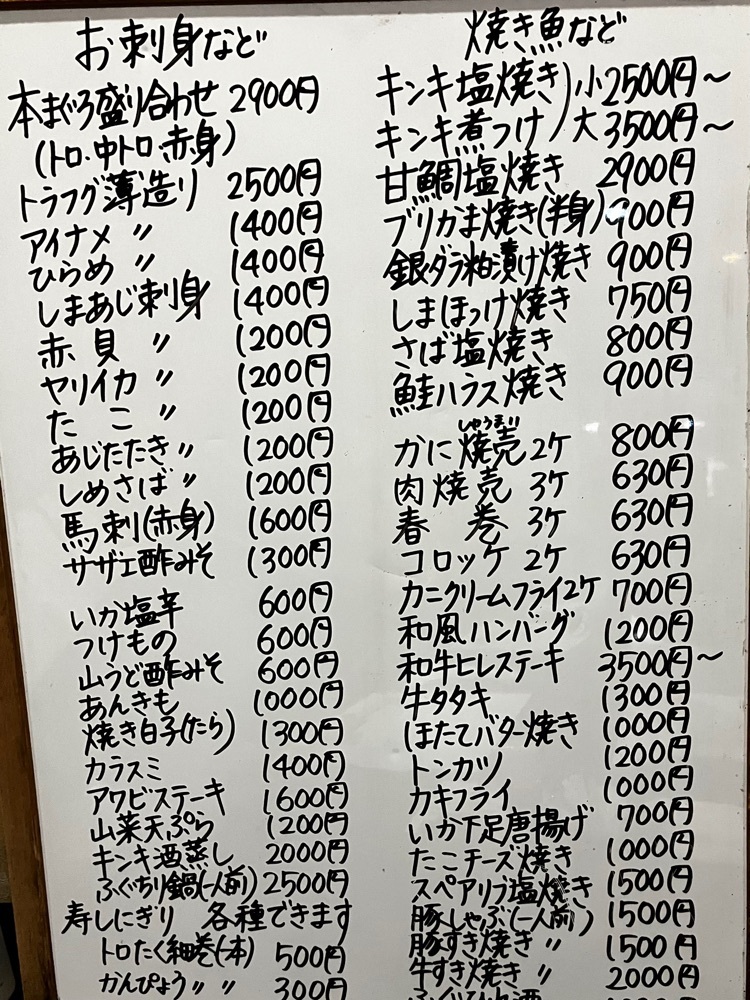 お刺身など
本まぐろ盛り合わせ 2900円
(トロ・中トロ・赤身)
トラフグ薄造り 2500円
アイナメ 〃 1400円
ひらめ 〃 1400円
しまあじ刺身 1400円
赤貝 〃 1200円
ヤリイカ 〃 1200円
たこ 〃 1200円
あじたたき 〃 1200円
しめさば 〃 1200円
馬刺(赤身) 1600円
サザエ酢みそ 1300円
いか塩辛 600円
つけもの 600円
山うど酢みそ 600円
あんきも 1000円
焼き白子(たら) 1300円
カラスミ 1400円
アワビステーキ 1600円
山菜天ぷら 1200円
キンキ酒蒸し 2000円
ふぐちり鍋(一人前) 2500円
寿しにぎり 各種できます
トロたく細巻(一本) 500円
かんぴょう 〃 〃 300円
焼き魚など
キンキ塩焼き 小2500円〜
キンキ煮つけ 大3500円〜
甘鯛塩焼き 2900円
ブリかま焼き(半身) 900円
銀ダラ粕漬け焼き 900円
しまほっけ焼き 750円
さば塩焼き 800円
鮭ハラス焼き 900円
しゅうまい
かに焼売 2ケ 800円
肉焼売 3ケ 630円
春巻 3ケ 630円
コロッケ 2ケ 630円
カニクリームフライ2ケ 700円
和風ハンバーグ 1200円
和牛ヒレステーキ 3500円〜
牛タタキ 1300円
ほたてバター焼き 1000円
トンカツ 1200円
カキフライ 1000円
いか下足唐揚げ 700円
たこチーズ焼き 1000円
スペアリブ塩焼き 1500円
豚しゃぶ(一人前) 1500円
豚すき焼き 〃 1500円
牛すき焼き 〃 2000円